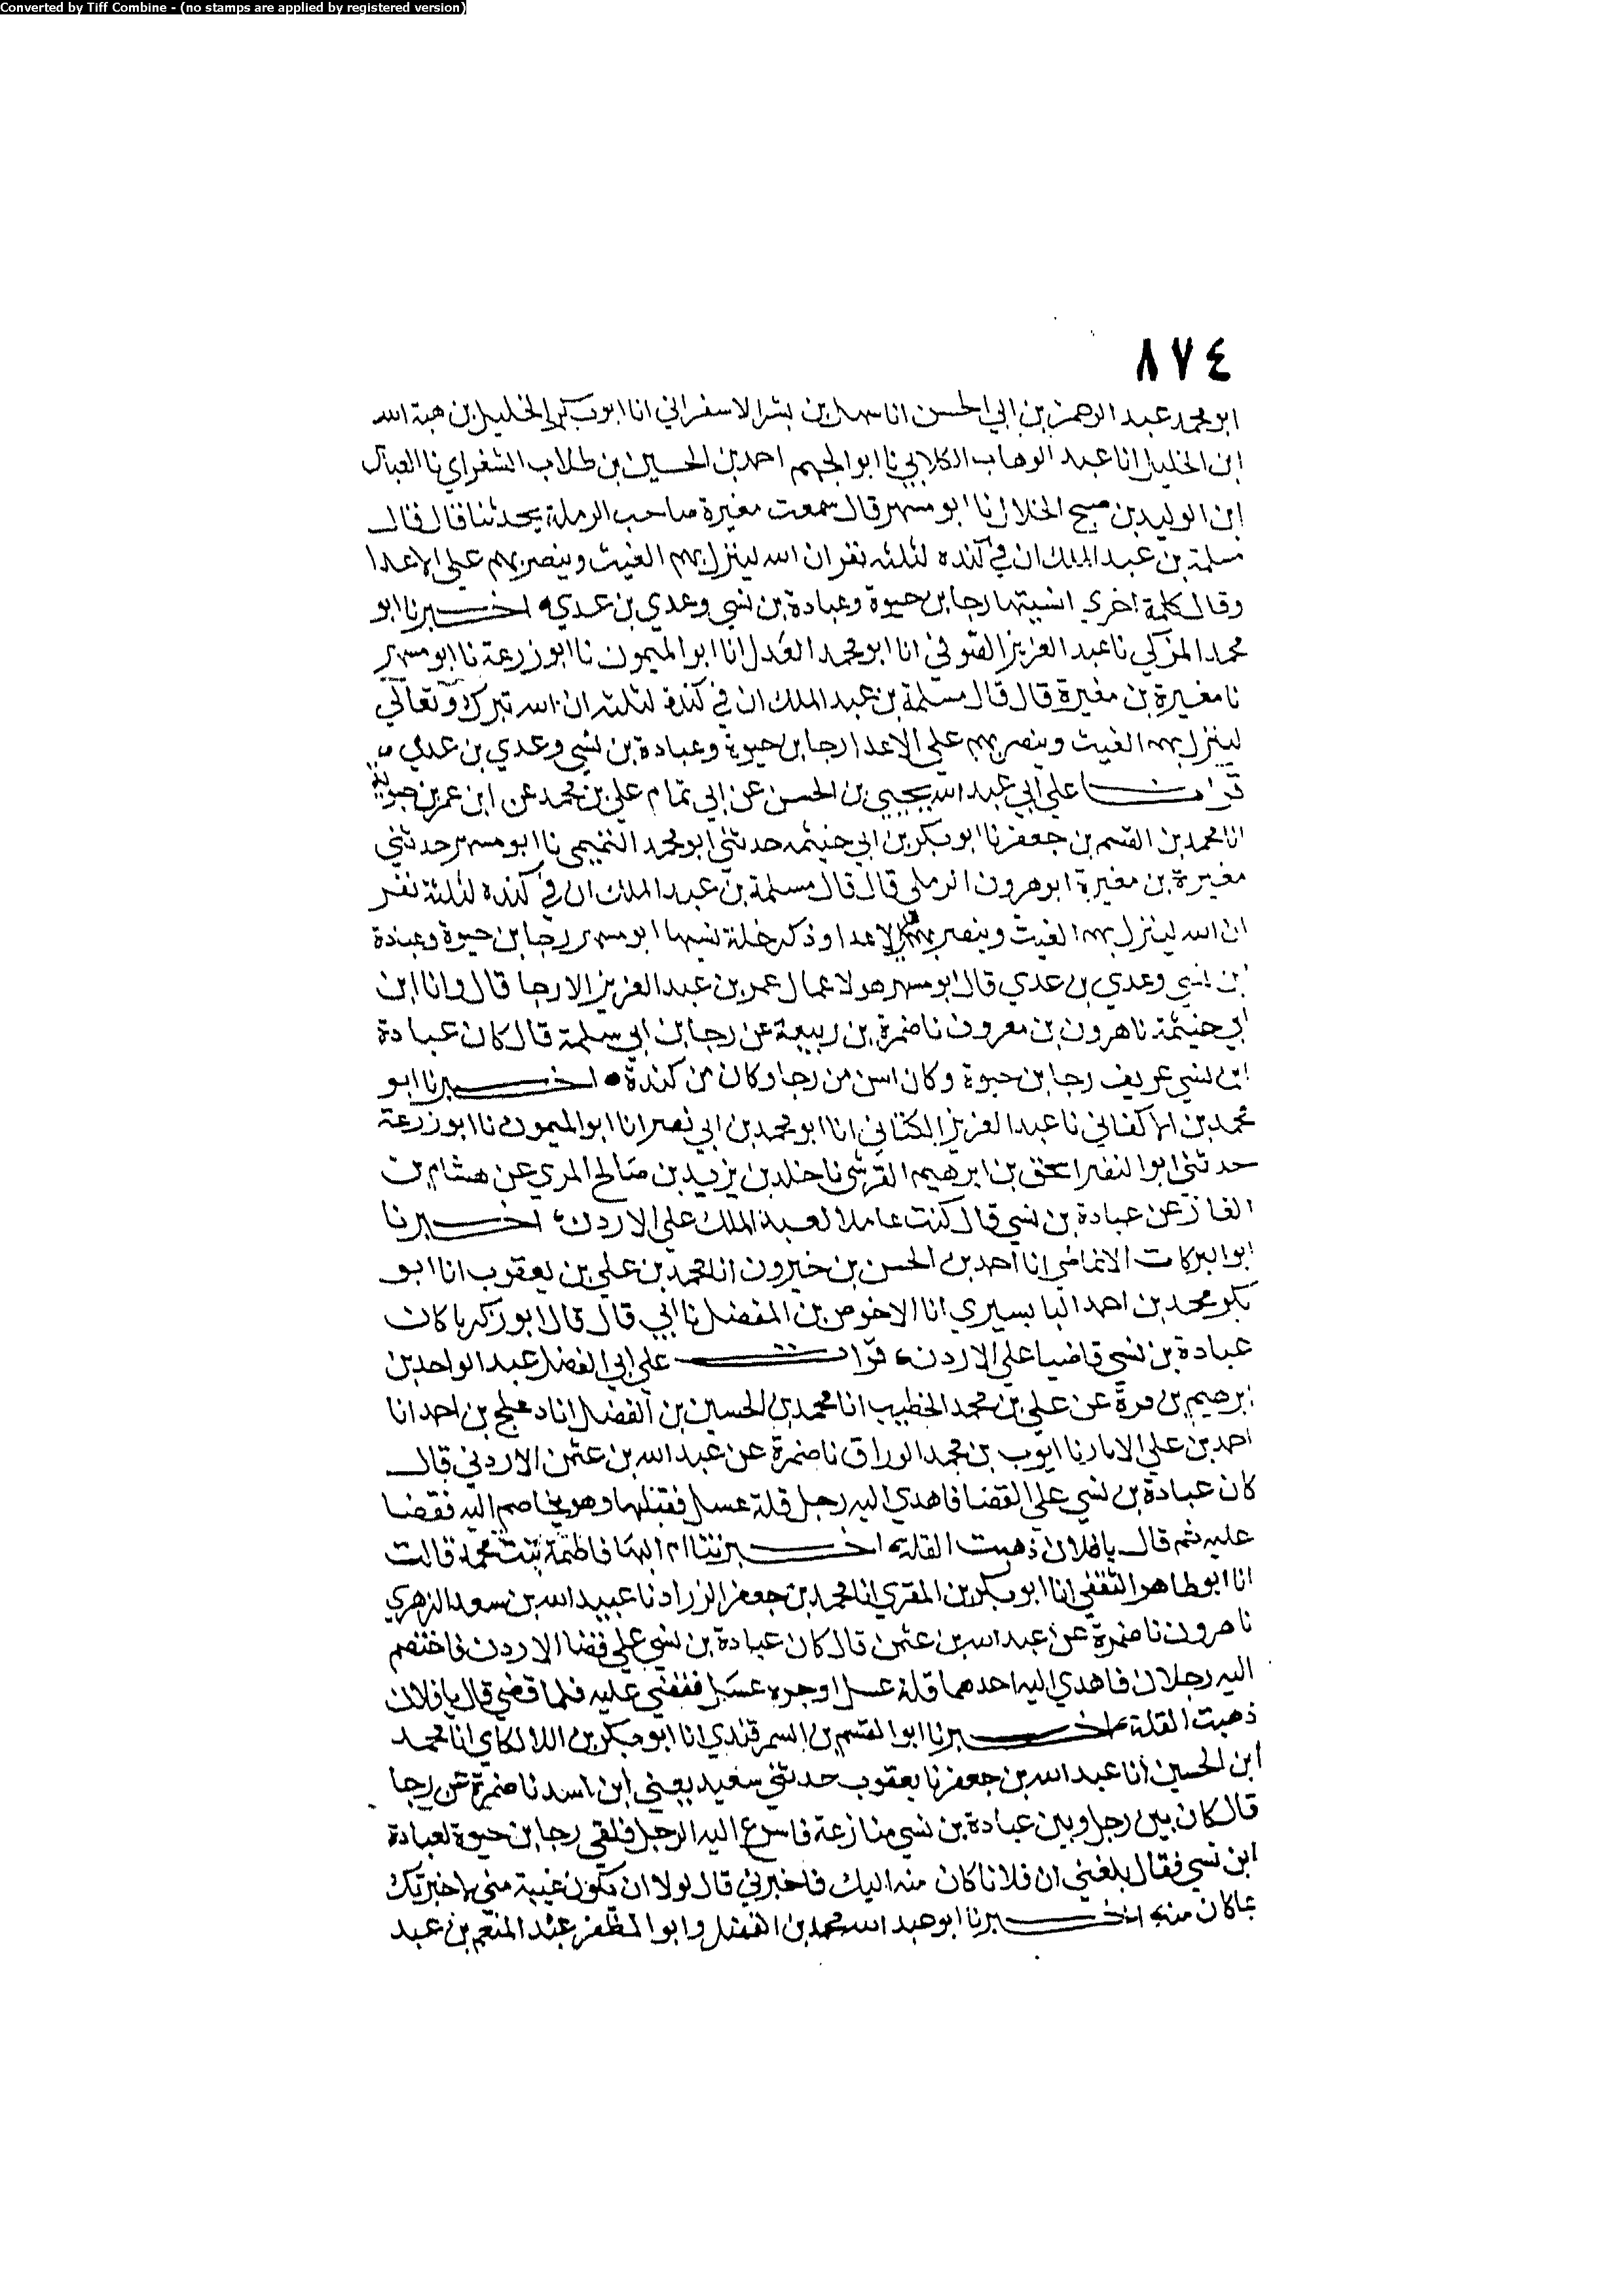 Converted by Tiff Combine - (no stamps are applied by registered version)
٨٧٤
ابو محمد عبد الرحمن بن ابي الحسن انا سهل بن بشر الاسفراني انا ابو بكر الخليل بن هبة الله
ابن الخليل انا عبد الوهاب الكلابي نا ابو الجهم احمد بن الحسين بن طلاب الشغراي نا العباس
ابن الوليد بن صبح الخلال نا ابو مسهر قال سمعت مغيرة صاحب الرملة يحدثنا قال قال
مسلمة بن عبد الملك ان في كنده لثلثه نفر ان الله لينزل بهم الغيث وينصر بهم على الاعدا
وقال كلمة اخري انسيتها رجا بن حيوة وعبادة بن نسي وعدي بن عدي اخبرنا ابو
محمد المزكي نا عبد العزيز الصوفي انا ابو محمد العدل انا ابو الميمون نا ابو زرعة نا ابو مسهر
نا مغيرة بن مغيرة قال قال مسلمة بن عبد الملك ان في كندة لثلثه ان الله تبرك وتعالي
لينزل بهم الغيث وينصر بهم علي الاعدا رجا بن حيوة وعبادة بن نسي وعدي بن عدي
قرات علي ابي عبد الله يحيي بن الحسن عن ابي تمام علي بن محمد عن ابن عمر بن حيوية
انا محمد بن القسم بن جعفر نا ابو بكر بن ابي خيثمه حدثني ابو محمد التميمي نا ابو مسهر حدثني
مغيرة بن مغيرة ابو هرون الرملي قال قال مسلمة بن عبد الملك ان في كنده لثلثة نفر
ان الله لينزل بهم الغيث وينصر بهم الاعدا وذكر خلة نسيها ابو مسهر رجا بن حيوة وعبادة
بن نسي وعدي بن عدي قال ابو مسهر هولا عمال عمر بن عبد العزيز الا رجا قال وانا ابن
ابي خيثمة نا هرون بن معروف نا ضمرة بن ربيعة عن رجا بن ابي سلمة قال كان عبادة
ابن نسي عريف رجا بن حيوة وكان اسن من رجا وكان من كندة اخبرنا ابو
محمد بن الاكفاني نا عبد العزيز الكتاني انا ابو محمد بن ابي نصر انا ابو الميمون نا ابو زرعة
حدثني ابو النضر اسحق بن ابرهيم القرشي نا خلد بن يزيد بن صالح المري عن هشام بن
الغاز عن عبادة بن نسي قال كنت عاملا لعبد الملك علي الاردن اخبرنا
ابو البركات الانماطي انا احمد بن الحسن بن خيرون انا محمد بن علي بن يعقوب انا ابو
بكر محمد بن احمد البابسيري انا الاخوص بن المفضل نا ابي قال قال ابو زكريا كان
عبادة بن نسي قاضيا علي الاردن قرات علي ابي الفضل عبد الواحد بن
ابرهيم بن قرة عن علي بن محمد الخطيب انا محمد بن الحسين بن الفضل انا دعلج بن احمد انا
احمد بن علي الابار نا ايوب بن محمد الوراق نا ضمرة عن عبد الله بن عثمن الاردني قال
كان عبادة بن نسي علي القضا فاهدي اليه رجل قلة عسل فقبلها وهو يخاصم اليه فقضا
عليه ثم قال يا فلان ذهبت القلة اخبرتنا ام البها فاطمة بنت محمد قالت
انا ابو طاهر الثقفي انا ابو بكر بن المقري انا محمد بن جعفر الزراد نا عبيد الله بن سعد الزهري
نا هرون نا ضمرة عن عبد الله بن عثمن قال كان عبادة بن نسي علي قضا الاردن فاختصم
اليه رجلان فاهدي اليه احدهما قلة عسل او جره عسل فقضي عليه فلما قضي قال يا فلان
ذهبت القلة اخبرنا ابو القسم بن السمرقندي انا ابو بكر بن اللالكاي انا محمد
ابن الحسين انا عبد الله بن جعفر نا يعقوب حدثني سعيد يعني ابن اسد نا ضمرة عن رجا
قال كان بين رجل وبين عبادة بن نسي منازعة فاسرع اليه الرجل فلقي رجا بن حيوة لعبادة
ابن نسي فقال بلغني ان فلانا كان منه اليك فاخبرني قال لولا ان تكون غيبة مني لاخبرتك
بما كان منه اخبرنا ابو عبد الله محمد بن الفضل وابو المظفر عبد المنعم بن عبد